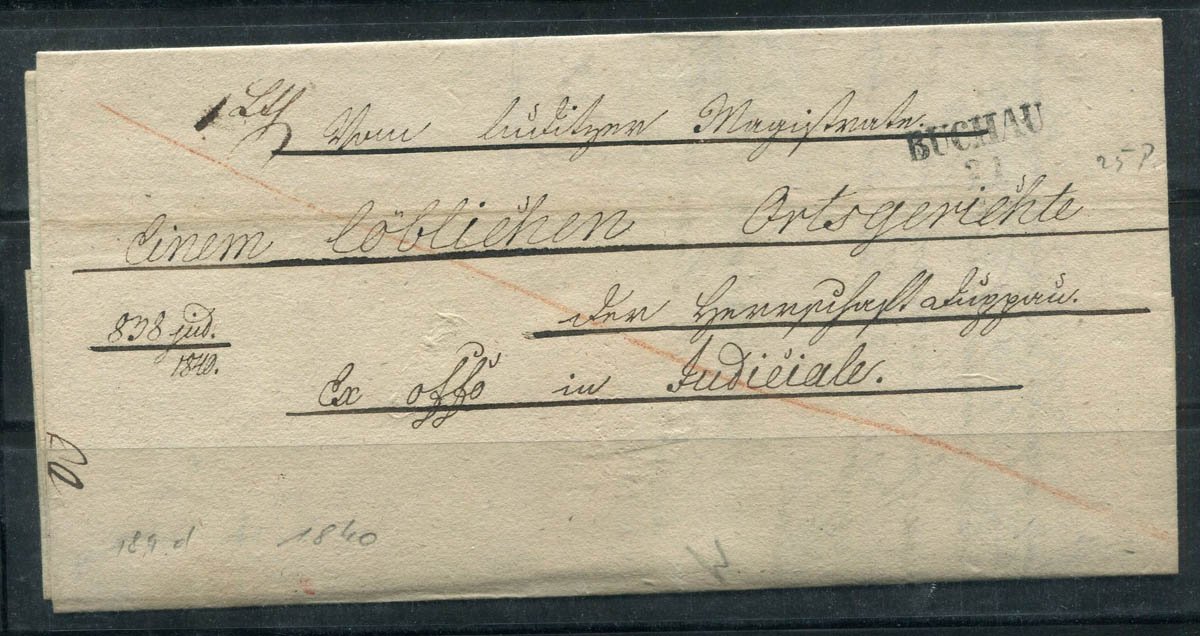 1 Lth Vom Luditzer Magistrate.
BUCHAU
21
25P
Einem löblichen Ortsgerichte
der Herrschaft Duppau.
838 jud.
1840.
Ex offo in Judiciale.
189.d 1840